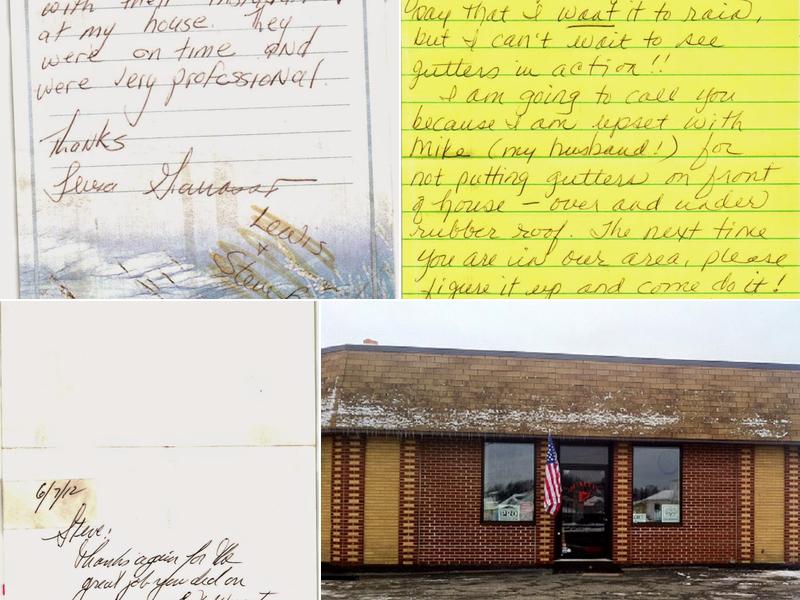 at my house. They
were on time and
were very professional.
Thanks
Lewis
+
Steve
that I want it to rain,
but I can't wait to see
gutters in action!!
I am going to call you
because I am upset with
Mike (my husband!) for
not putting gutters on front
of house - over and under
rubber roof. The next time
you are in our area, please
figure it up and come do it!
6/7/12
Steve:
Thanks again for the
great job you did on
PRO